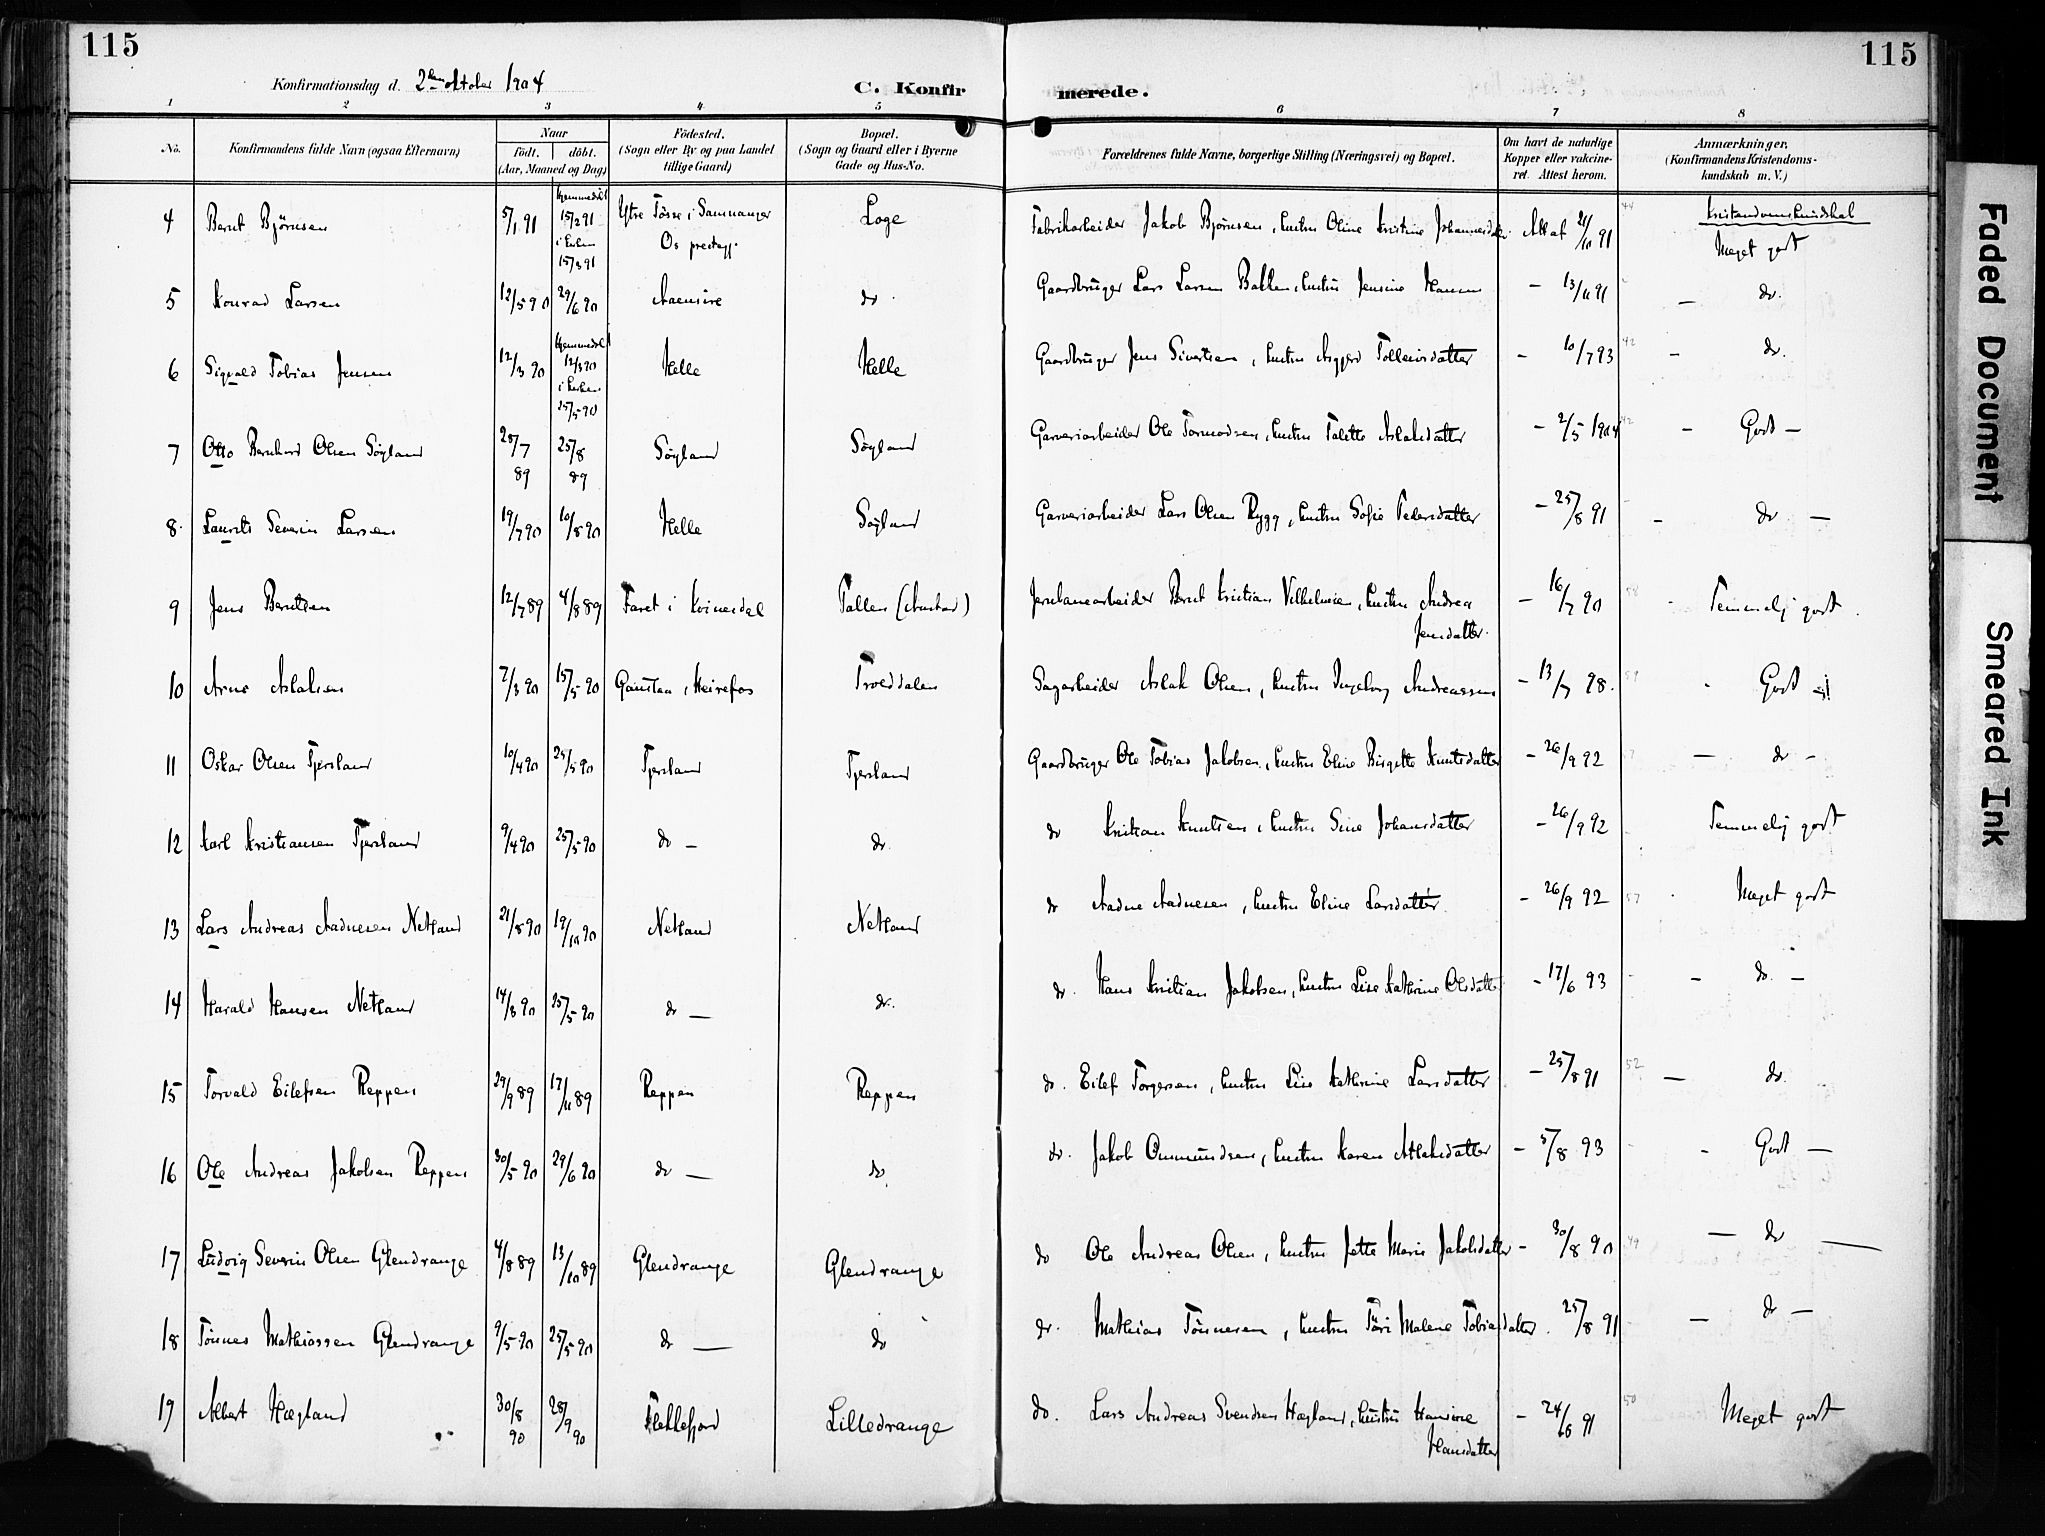 115
115
Konfirmationsdag d. 2den oktober 1904
C. Konfirmerede.
1 2 3 4 5 6 7 8
No. Konfirmandens fulde Navn (ogsaa Efternavn) Naar født. døbt. (Aar, Maaned og Dag) Fødested. (Sogn eller By og paa Landet tillige Gaard) Bopæl. (Sogn og Gaard eller i Byerne Gade og Hus-No. Forældrenes fulde Navne, borgerlige Stilling (Næringsvei) og Bopæl. Om havt de naturlige Kopper eller vakcineret. Attest herom. Anmærkninger, (Konfirmandens Kristendomskundskab m. V.)
4 Bernt Bjørnsen 5/1 91 hjemmedøbt 15/2 91 i kirken 15/3 91 Ytre Tøsse i Samnanger Os prestegj. Loge Fabrikarbeider Jakob Bjørnsen, hustru Oline Kristine Johannesdatter Attest 21/10 91 44 Kristendomskundskab Meget godt
5 Konrad Larsen 12/5 90 29/6 90 Aaensire do Gaardbruger Lars Larsen Bakken, hustru Jensine Hansen - 13/11 91 - do.
6 Sigvald Tobias Jensen 12/3 90 hjemmedøbt 12/3 90 i kirken 25/5 90 Helle Helle Gaardbruger Jens Sivertsen, hustru Asgjerd Tolleivsdatter - 10/7 93 42 - do.
7 Otto Bernhard Olsen Søyland 28/7 89 25/8 89 Søyland Søyland Garveriarbeider Ole Tormodsen, hustru Talette Aslaksdatter - 2/5 1904 42 - Godt -
8. Laurits Severin Larsen 19/7 90 10/8 90 Helle Søyland Garveriarbeider Lars Olsen Rygg, hustru Sofie Pedersdatter - 25/8 91 - do -
9 Jens Berntsen 12/7 89 4/8 89 Faret i Kvinesdal Tallen (Anstad) Jernbanearbeider Bernt Kristian Vilhelmsen, hustru Andrea Jensdatter. - 16/7 90 58 - Temmelig godt.
10 Arne Aslaksen 7/3 90 15/5 90 Gaustan, Heirefos Trolddalen Sagarbeider Aslak Olsen, hustru Ingeborg Andreassen - 13/7 98. 59 - Godt
11 Oskar Olsen Tjersland 10/4 90 25/5 90 Tjersland Tjersland Gaardbruger Ole Tobias Jakobsen, hustru Eline Birgitte Knutsdatter - 26/9 92 57 - do -
12 Karl Kristiansen Tjersland 9/4 90 25/5 90 do - do. do Kristian Knutsen, hustru Sine Johansdatter - 26/9 92 Temmelig godt
13 Lars Andreas Aadnesen Netland 21/8 90 19/10 90 Netland Netland do Aadne Aadnesen, hustru Eline Larsdatter - 26/9 92 57 Meget godt
14 Harald Hansen Netland 14/3 90 25/5 90 do - do. do. Hans Kristian Jakobsen, hustru Lise Kathrine Olsdatter - 17/6 93 - do. -
15 Torvald Eilefsen Reppen 29/9 89 17/11 89 Reppen Reppen do. Eilef Torgersen, hustru Lise Kathrine Larsdatter - 25/8 91 52 - do.
16 Ole Andreas Jakobsen Reppen 30/5 90 29/6 90 do - do do. Jakob Ommundsen, hustru Karen Atlaksdatter - 5/8 93 - Godt -
17 Ludvig Severin Olsen Glendrange 4/8 89 13/10 89 Glendrange Glendrange do Ole Andreas Olsen, hustru Jette Marie Jakobsdatter - 30/8 90 49 - do -
18 Tønnes Mathiassen Glendrange 9/5 90 25/5 90 do - do do. Mathias Tønnesen, hustru Tøri Malene Tobiasdatter. 25/8 91 - do -
19 Albert Hægland 30/8 90 28/9 90 Flekkefjord Lilledrange do. Lars Andreas Svendsen Hægland, hustru Hansine Hansdatter - 24/10 91 50 Meget godt
Faded Document
Smeared Ink